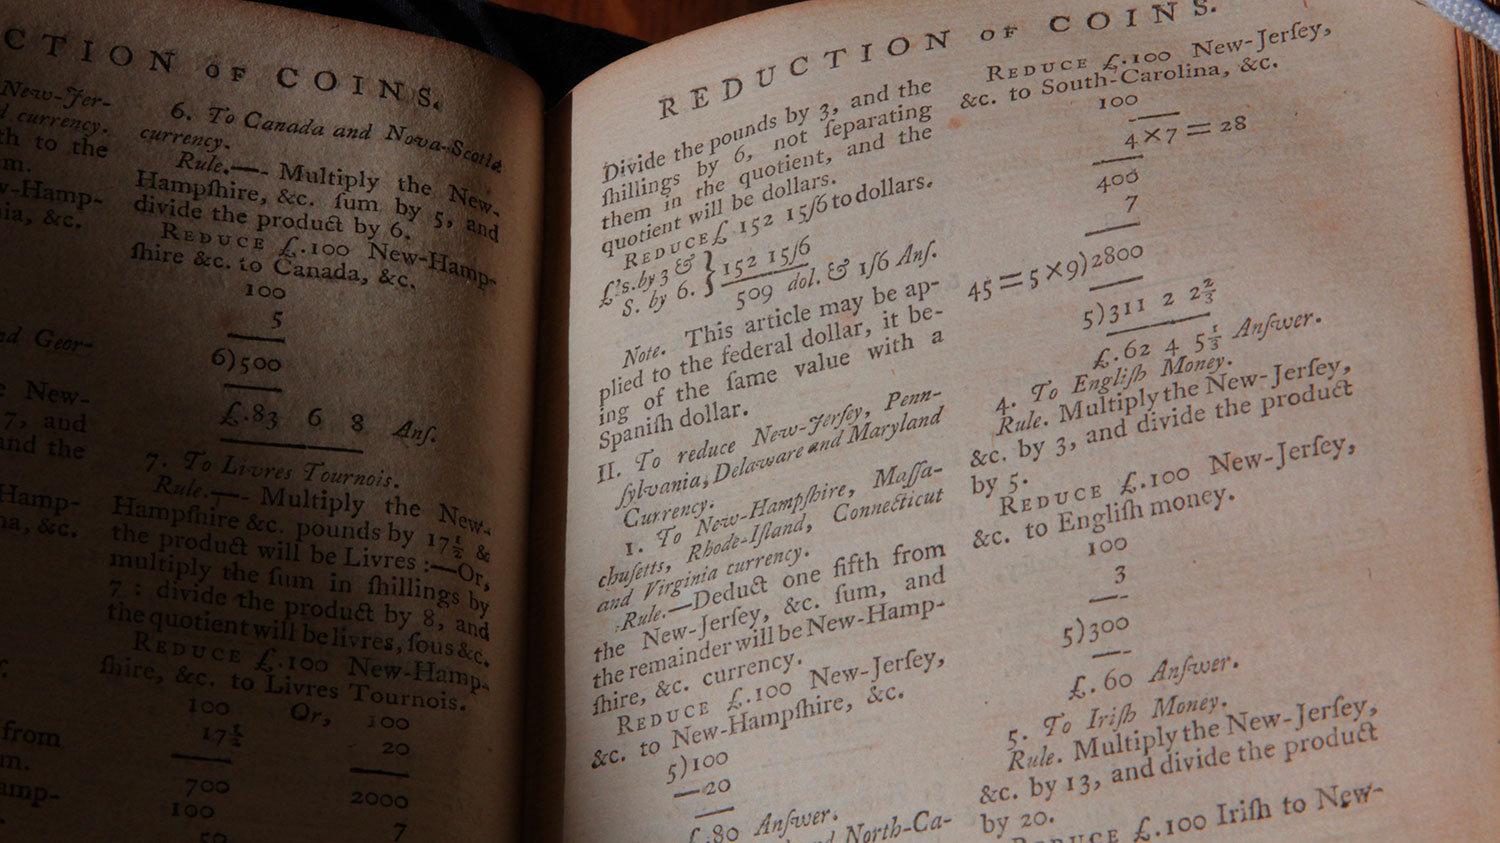 CTION OF COINS.
New-Jer-
d currency.
th to the
m.
w-Hamp-
ia, &c.
nd Geor-
e New-
7, and
and the
Hamp-
na, &c.
from
m.
amp-
6. To Canada and Nova-Scotia
currency.
Rule.—- Multiply the New-
Hampſhire, &c. ſum by 5, and
divide the product by 6.
REDUCE £.100 New-Hamp-
ſhire &c. to Canada, &c.
100
5
6)500
£.83 6 8 Anſ.
7. To Livres Tournois.
Rule.—- Multiply the New-
Hampſhire &c. pounds by 17½ &
the product will be Livres :—Or,
multiply the ſum in ſhillings by
7 : divide the product by 8, and
the quotient will be livres, ſous &c.
REDUCE £.100 New-Hamp-
ſhire, &c. to Livres Tournois.
100 Or, 100
17½ 20
700 2000
100 7
50
REDUCTION OF COINS.
Divide the pounds by 3, and the
ſhillings by 6, not ſeparating
them in the quotient, and the
quotient will be dollars.
REDUCE £ 152 15/6 to dollars.
£'s. by 3 & } 152 15/6
S. by 6. } 509 dol. & 1/6 Anſ.
Note. This article may be ap-
plied to the federal dollar, it be-
ing of the ſame value with a
Spaniſh dollar.
II. To reduce New-Jerſey, Penn-
ſylvania, Delaware and Maryland
Currency.
1. To New-Hampſhire, Maſſa-
chuſetts, Rhode-Iſland, Connecticut
and Virginia currency.
Rule.—Deduct one fifth from
the New-Jerſey, &c. ſum, and
the remainder will be New-Hamp-
ſhire, &c. currency.
REDUCE £.100 New-Jerſey,
&c. to New-Hampſhire, &c.
5)100
—20
£.80 Anſwer.
and North-Ca-
REDUCE £.100 New-Jerſey,
&c. to South-Carolina, &c.
100
4×7=28
400
7
45=5×9)2800
5)311 2 2⅔
£.62 4 5⅓ Anſwer.
4. To Engliſh Money.
Rule. Multiply the New-Jerſey,
&c. by 3, and divide the product
by 5.
REDUCE £.100 New-Jerſey,
&c. to Engliſh money.
100
3
5)300
£.60 Anſwer.
5. To Iriſh Money.
Rule. Multiply the New-Jerſey,
&c. by 13, and divide the product
by 20.
REDUCE £.100 Iriſh to New-